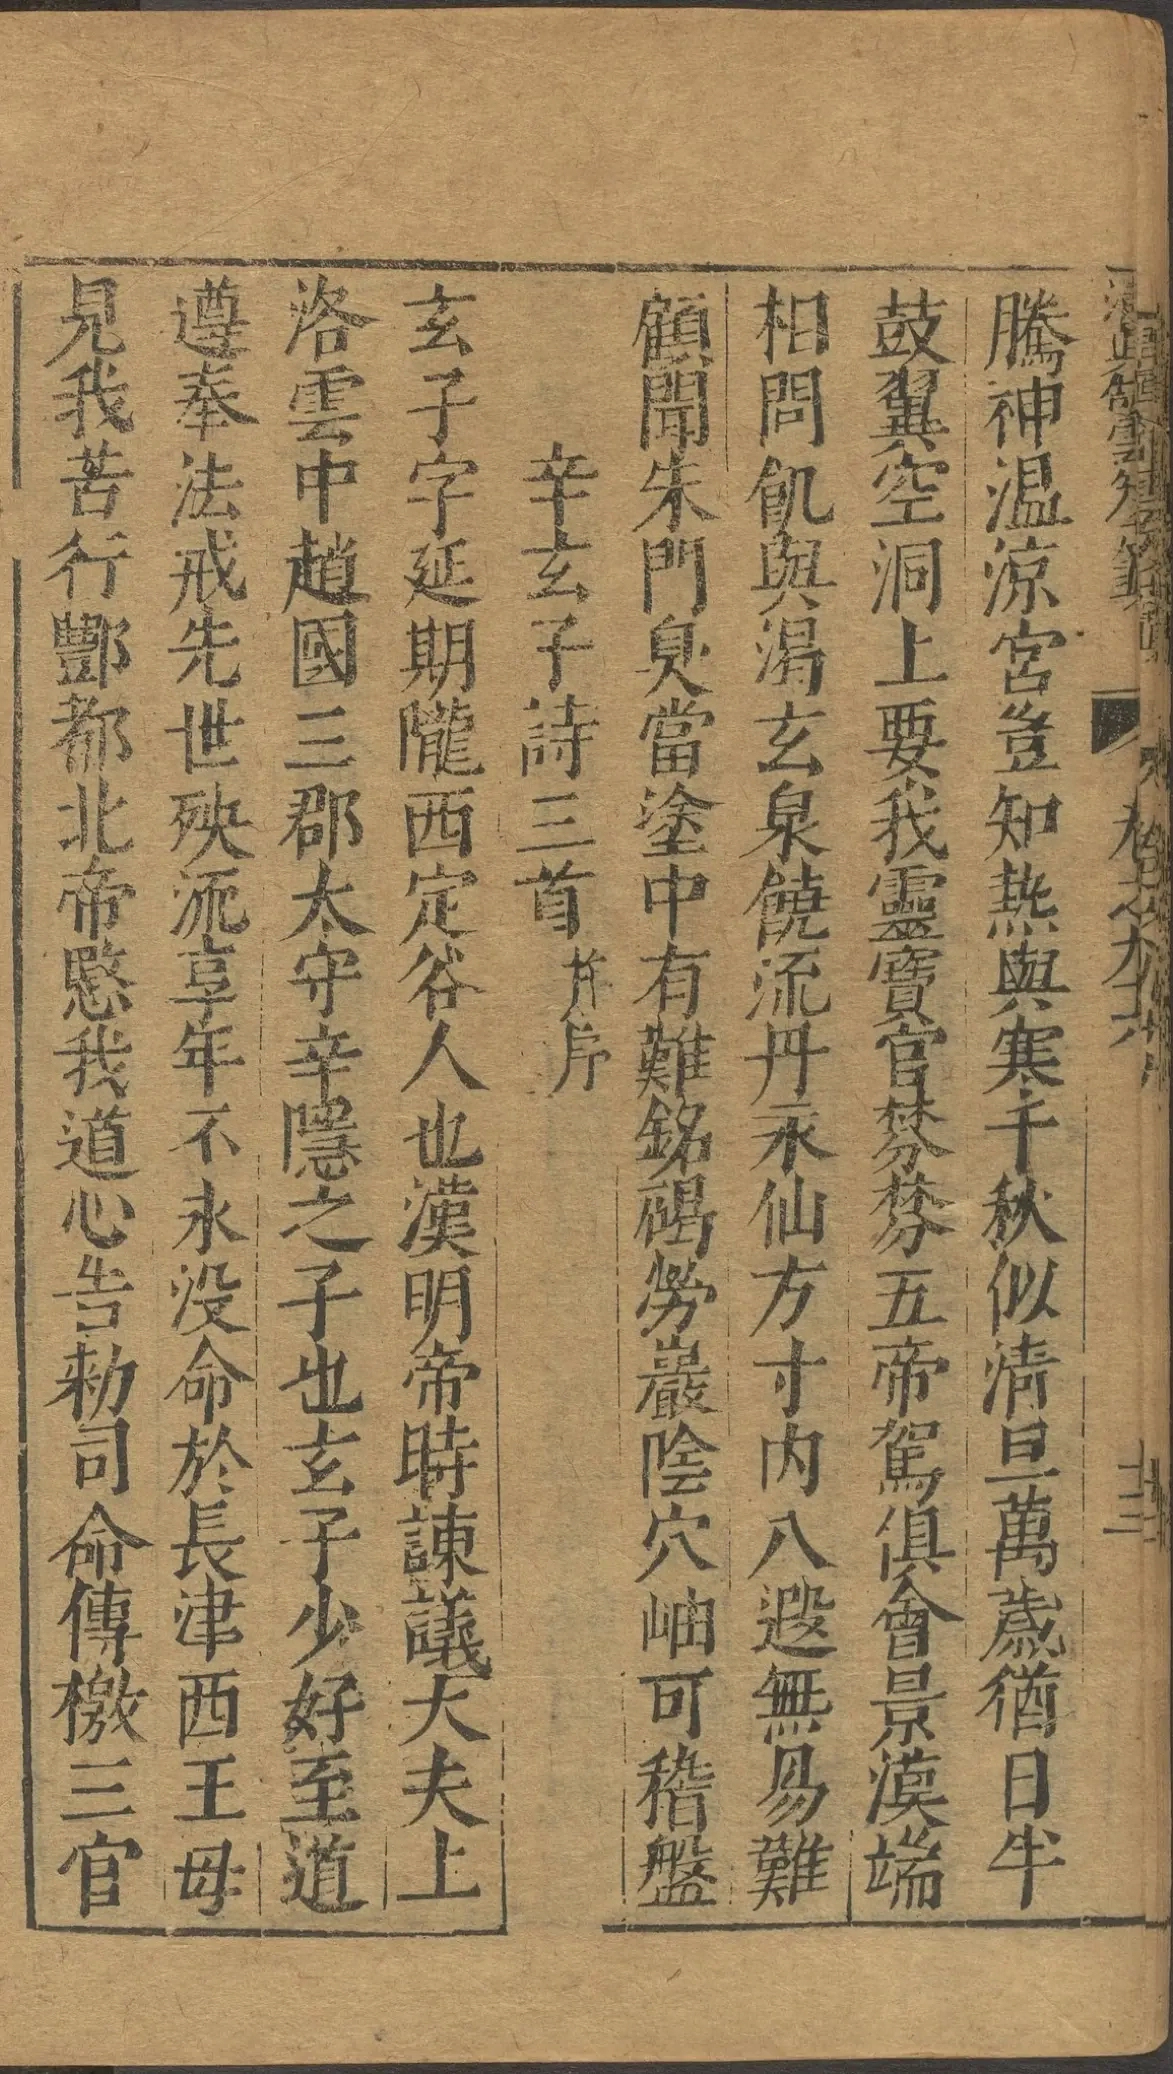 騰神温涼宮豈知熱與寒千秋似清旦萬歲猶日半
鼓翼空洞上要我靈寶官棼棼五帝駕俱會景漠端
相問飢與渴玄泉饒流丹永仙方寸内八遐無易難
顧聞朱門臭當塗中有難銘碣勞巖陰穴岫可稽盤
辛玄子詩三首并序
玄子字延期隴西定谷人也漢明帝時諫議大夫上
洛雲中趙國三郡太守辛隱之子也玄子少好至道
遵奉法戒先世殃流享年不永没命於長津西王母
見我苦行酆都北帝愍我道心告勑司命傳檄三官